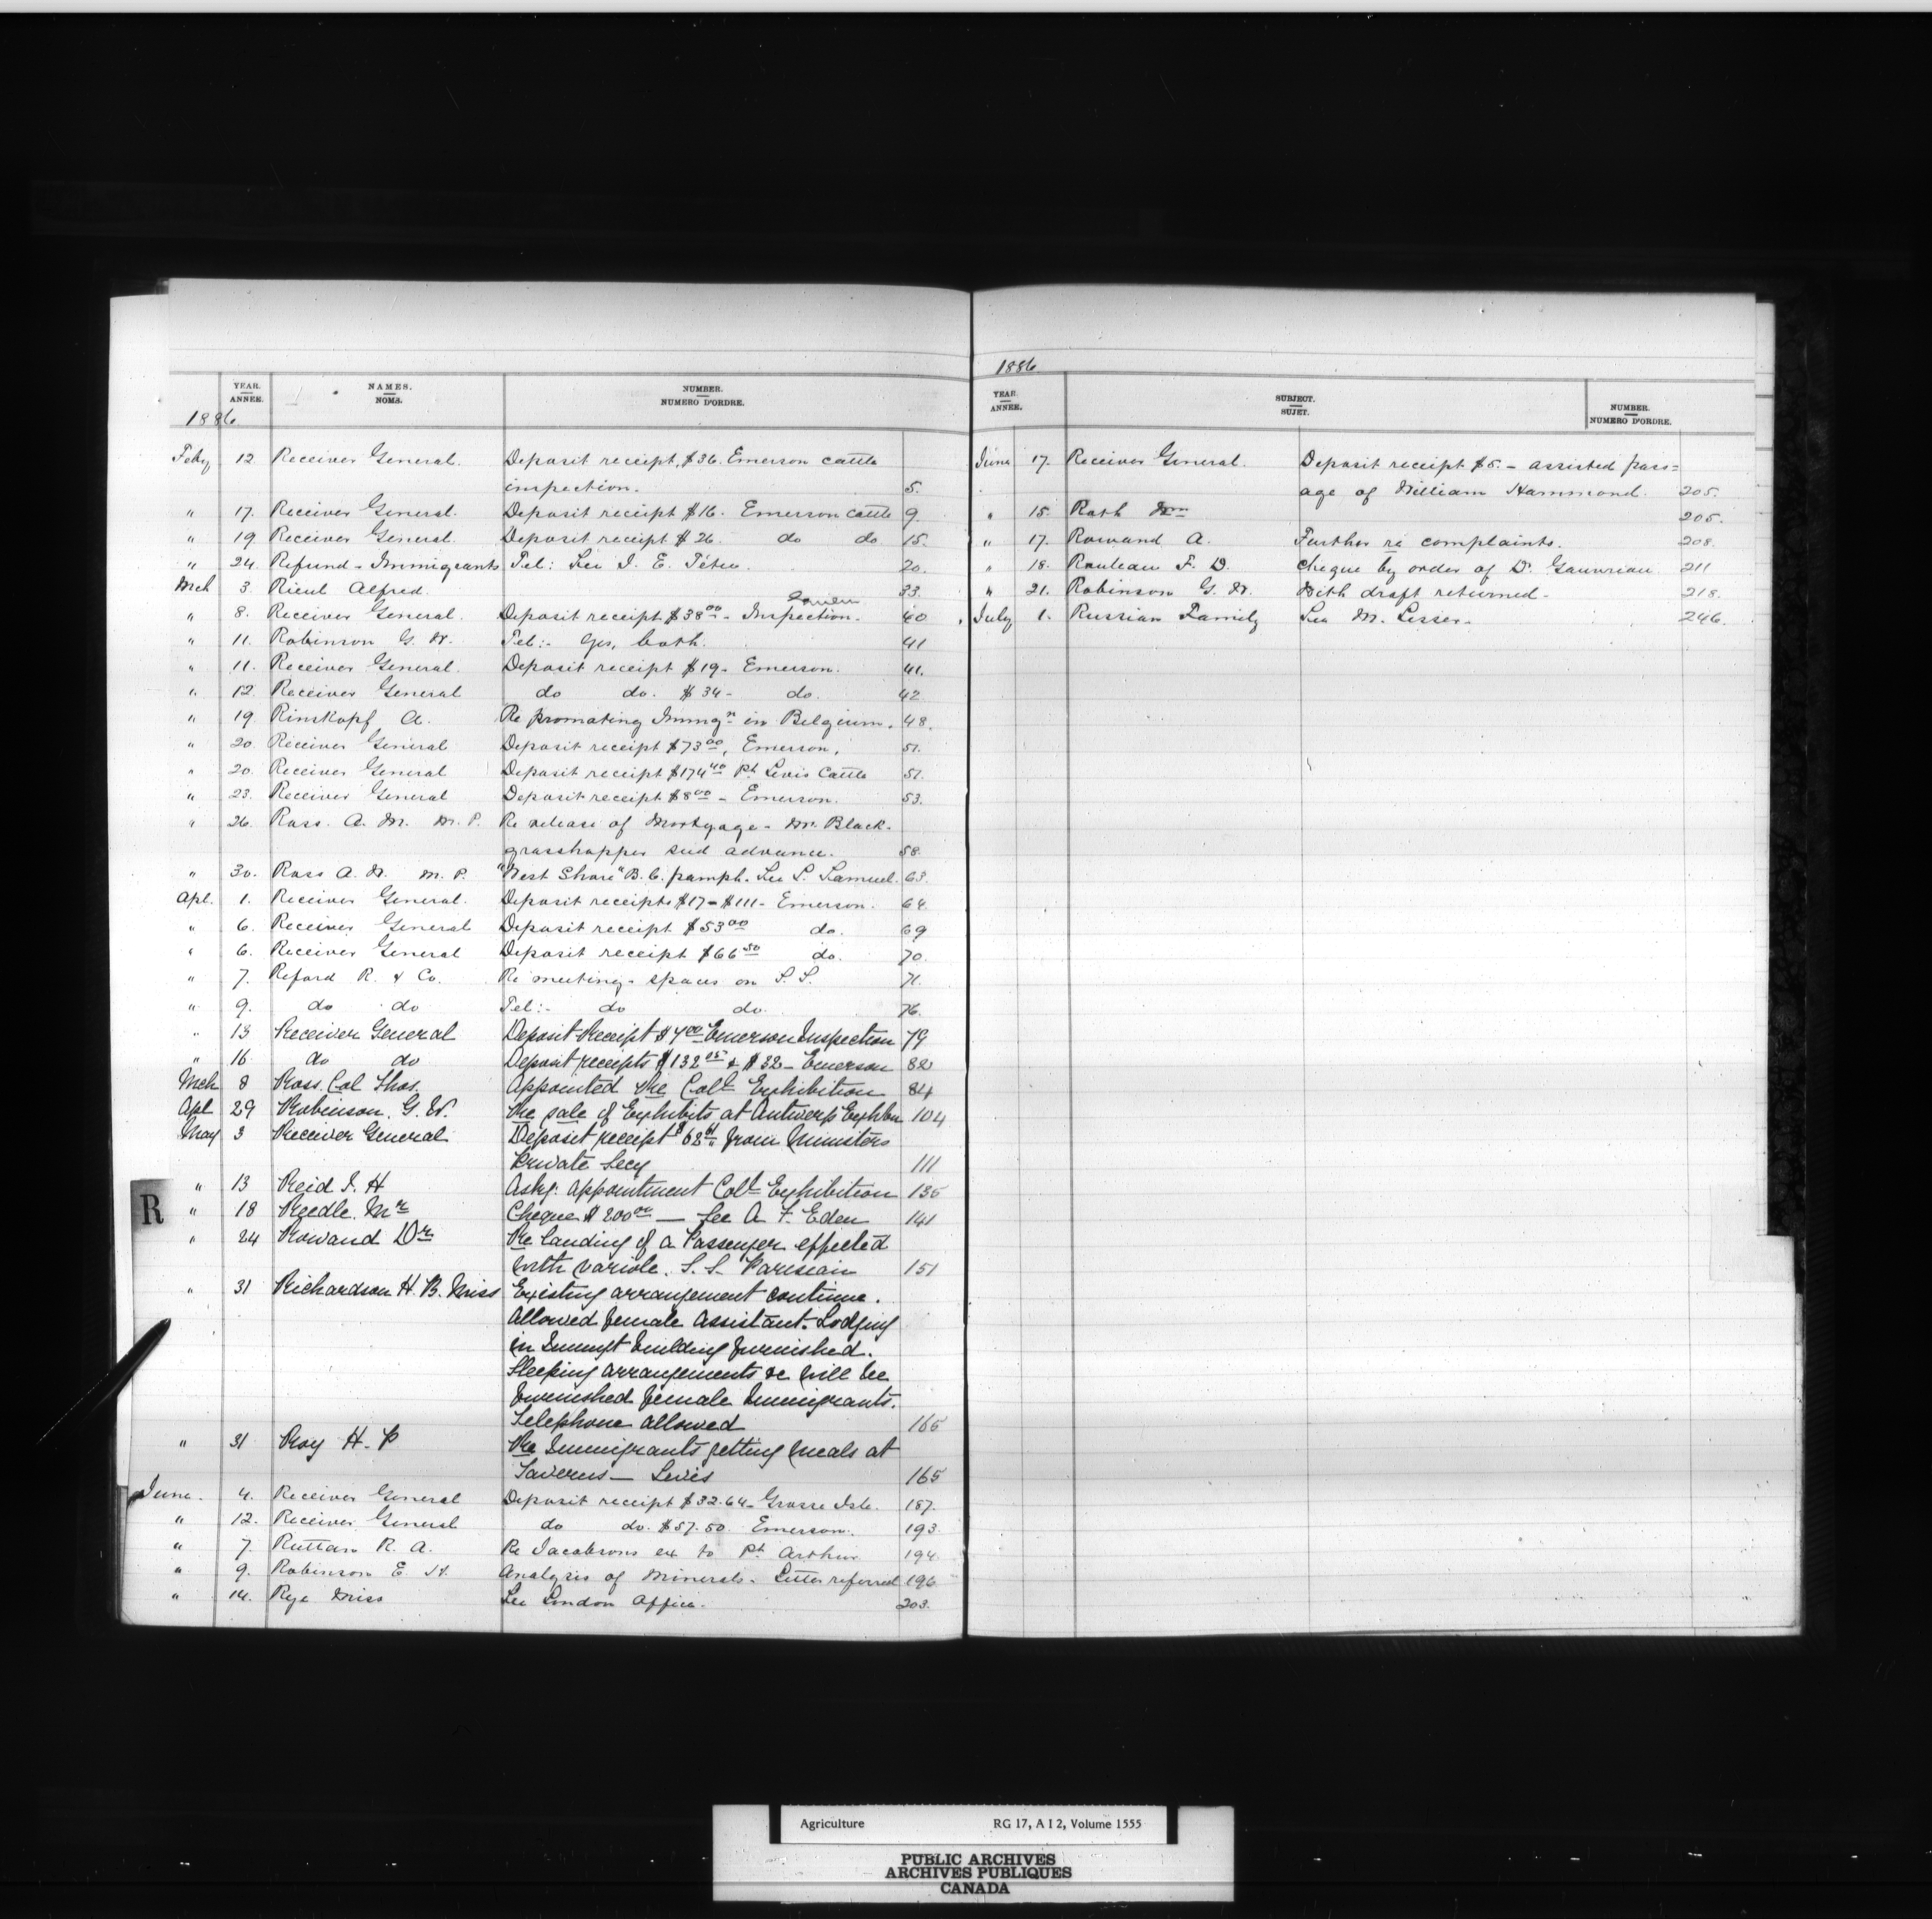 YEAR.
ANNEE.
NAMES.
NOMS.
NUMBER.
NUMERO D'ORDRE.
1886
Feby 12. Receiver General. Deposit receipt, $36. Emerson cattle
inspection. 5.
" 17. Receiver General. Deposit receipt $16. Emerson cattle 9.
" 19 Receiver General. Deposit receipt $26. do do 15.
" 24. Refund - Immigrants Tel: See I. E. Têtu. 20.
Mch 3. Rieul Alfred. 33.
" 8. Receiver General. Deposit receipt $38.00 - Inspection. 40
" 11. Robinson G. W. Tel:- Yes, both. 41
" 11. Receiver General. Deposit receipt $19 - Emerson. 41.
" 12. Receiver General do do. $34 - do. 42
" 19. Rinskopf A. Re promoting Immgn in Belgium. 48.
" 20. Receiver General Deposit receipt $73.00, Emerson, 51.
" 20. Receiver General Deposit receipt $174.40 Pt. Levis Cattle 51.
" 23. Receiver General Deposit receipt $8.00 - Emerson. 53.
" 26. Ross. A. W. M. P. Re release of Mortgage - Wm. Black -
grasshopper seed advance. 58.
" 30. Ross A. W. M. P. "West Shore" B. C. pamph. See L. Samuel. 63.
Apl. 1. Receiver General. Deposit receipts $17 - $111 - Emerson. 64
" 6. Receiver General Deposit receipt $53.00 do. 69
" 6. Receiver General Deposit receipt $66.50 do. 70.
" 7. Reford R. & Co. Re meeting - spaces on S. S. 71.
" 9. do do Tel:- do do. 76.
" 13 Receiver General Deposit Receipt $4.00 Emerson Inspection 79
" 16 do do Deposit receipts $132.05 & $32 - Emerson 82
Mch 8 Ross. Col Thos. Appointed Re Coll Exhibition 84
Apl 29 Robinson. G. W. Re sale of Exhibits at Antwerp Exhbn 104
May 3 Receiver General Deposit receipt $62.61 from Ministers
Private Secy 111
" 13 Reid J. H Askg. appointment Coll Exhibition 135
" 18 Reedle. Mr Cheque $200.00 — See A. F. Eden 141
" 24 Rowand Dr Re landing of a Passenger effected
with variole. S. S. Pareseain 151
" 31 Richardson H. B. Miss Existing arrangement continue.
Allowed female assistant. Lodging
in Immgt building furnished.
Sleeping arrangements &c will be
furnished female Immigrants.
Telephone allowed 165
" 31 Roy H. P Re Immigrants getting meals at
Taverns — Levis 165
June. 4. Receiver General Deposit receipt $32.64 - Grosse Isle. 187.
" 12. Receiver General do do. $57.50. Emerson. 193.
" 7. Ruttan R. A. Re Jacobsons ex to Pt. Arthur 194.
" 9. Robinson E. H. Analysis of Minerals. Letter referred 196
" 14. Rye Miss See London Office. 203.
R
1886
YEAR.
ANNEE.
SUBJECT.
SUJET.
NUMBER.
NUMERO D'ORDRE.
June 17. Receiver General. Deposit receipt $5. - assisted pass=
age of William Hammond. 205.
" 15. Roth Wm 205.
" 17. Rowand A. Further re complaints. 208.
" 18. Rouleau F. D. Cheque by order of D. Gauvreau 211
" 21. Robinson G. W. With draft returned - 218.
July 1. Russian Family See M. Lesser. 246.
Agriculture RG 17, A I 2, Volume 1555
PUBLIC ARCHIVES
ARCHIVES PUBLIQUES
CANADA